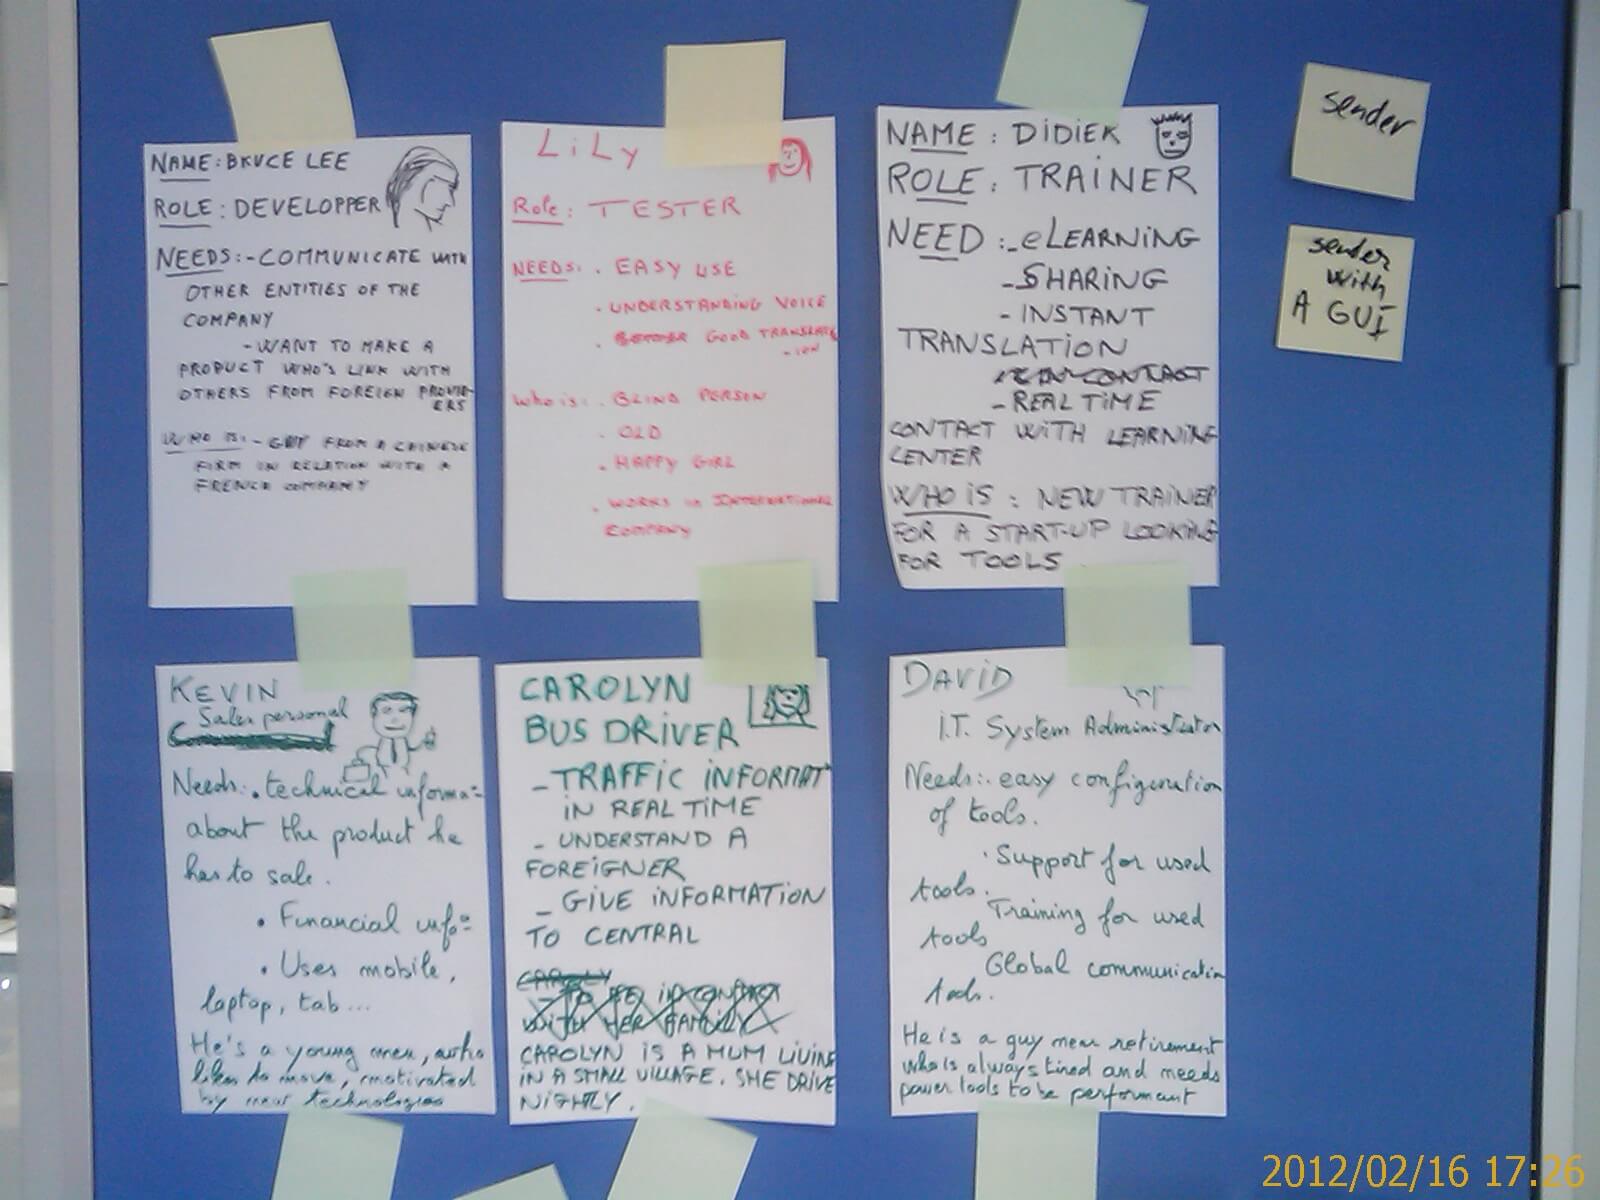 NAME: BRUCE LEE
ROLE: DEVELOPPER
NEEDS: - COMMUNICATE WITH
OTHER ENTITIES OF THE
COMPANY
- WANT TO MAKE A
PRODUCT WHO'S LINK WITH
OTHERS FROM FOREIGN PROVID-
ERS
WHO IS: - GUY FROM A CHINESE
FIRM IN RELATION WITH A
FRENCH COMPANY
LiLy
Role: TESTER
NEEDS: . EASY USE
. UNDERSTANDING VOICE
. GOOD TRANSLATE
-ION
Who is: . BLIND PERSON
. OLD
. HAPPY GIRL
. WORKS in INTERNATIONAL
COMPANY
NAME: DIDIER
ROLE: TRAINER
NEED: - eLEARNING
- SHARING
- INSTANT
TRANSLATION
- REAL TIME
CONTACT WITH LEARNING
CENTER
WHO IS: NEW TRAINER
FOR A START-UP LOOKING
FOR TOOLS
sender
sender
with
A GUI
KEVIN
Sales personal
Needs: . technical informa-
about the product he
has to sale.
. Financial info
. Uses mobile,
laptop, tab...
He's a young men, who
likes to move, motivated
by new technologies
CAROLYN
BUS DRIVER
- TRAFFIC INFORMAT
IN REAL TIME
- UNDERSTAND A
FOREIGNER
- GIVE INFORMATION
TO CENTRAL
CAROLYN
- TO BE IN CONTACT
WITH HER FAMILY
CAROLYN IS A MUM LIVING
IN A SMALL VILLAGE. SHE DRIVE
NIGHTLY.
DAVID
I.T. System Administrator
Needs: . easy configuration
of tools.
. Support for used
tools.
. Training for used
tools
Global communication
tools.
He is a guy near retirement
who is always tired and needs
power tools to be performant
2012/02/16 17:26